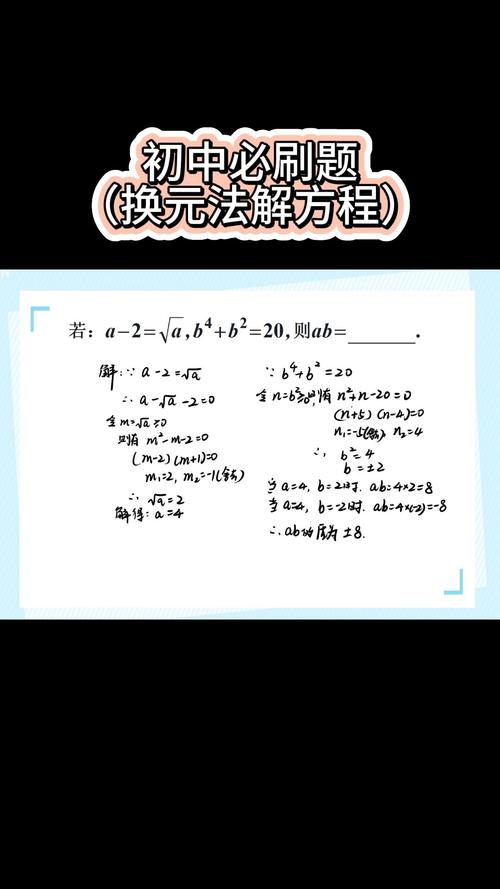 初中必刷题
（换元法解方程）
若：a−2=√a,b⁴+b²=20,则ab=______.
解:∵ a-2=√a
∴ a-√a-2=0
令m=√a≥0
则有 m²-m-2=0
(m-2)(m+1)=0
m₁=2, m₂=-1(舍去)
∴ √a=2
解得: a=4
∵ b⁴+b²=20
令n=b²≥0则有 n²+n-20=0
(n+5)(n-4)=0
n₁=-5(舍去), n₂=4
∴ b²=4
b=±2
当a=4, b=2时. ab=4×2=8
当a=4, b=-2时. ab=4×(-2)=-8
∴ab的值为 ±8.